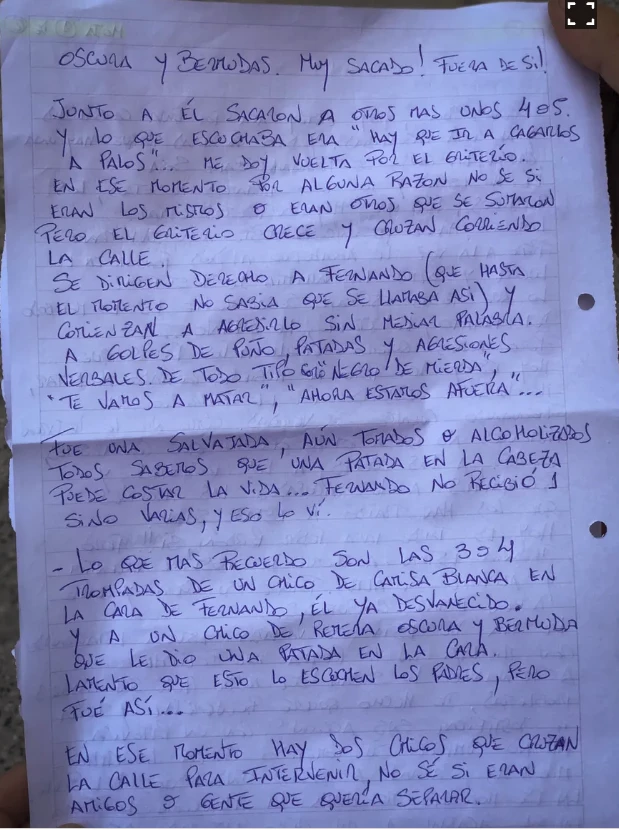 OSCURA Y BERMUDAS. MUY SACADO! FUERA DE SI!
JUNTO A ÉL SACARON A OTROS MAS UNOS 4 o 5.
Y LO QUE ESCUCHABA ERA "HAY QUE IR A CAGARLOS
A PALOS"... ME DOY VUELTA POR EL GRITERÍO.
EN ESE MOMENTO POR ALGUNA RAZON NO SE SI
ERAN LOS MISMOS O ERAN OTROS QUE SE SUMARON
PERO EL GRITERIO CRECE Y CRUZAN CORRIENDO
LA CALLE.
SE DIRIGEN DERECHO A FERNANDO (QUE HASTA
EL MOMENTO NO SABIA QUE SE LLAMABA ASI) Y
COMIENZAN A AGREDIRLO SIN MEDIAR PALABRA.
A GOLPES DE PUÑO, PATADAS Y AGRESIONES
VERBALES. DE TODO TIPO "NEGRO DE MIERDA",
"TE VAMOS A MATAR", "AHORA ESTAMOS AFUERA"...
FUE UNA SALVAJADA, AÚN TOMADOS O ALCOHOLIZADOS
TODOS SABEMOS QUE UNA PATADA EN LA CABEZA
PUEDE COSTAR LA VIDA... FERNANDO NO RECIBIÓ 1
SINO VARIAS, Y ESO LO VÍ.
- LO QUE MAS RECUERDO SON LAS 3 o 4
TROMPADAS DE UN CHICO DE CAMISA BLANCA EN
LA CARA DE FERNANDO, ÉL YA DESVANECIDO.
Y A UN CHICO DE REMERA OSCURA Y BERMUDA
QUE LE DIO UNA PATADA EN LA CARA.
LAMENTO QUE ESTO LO ESCUCHEN LOS PADRES, PERO
FUÉ ASÍ...
EN ESE MOMENTO HAY DOS CHICOS QUE CRUZAN
LA CALLE PARA INTERVENIR, NO SÉ SI ERAN
AMIGOS O GENTE QUE QUERÍA SEPARAR.